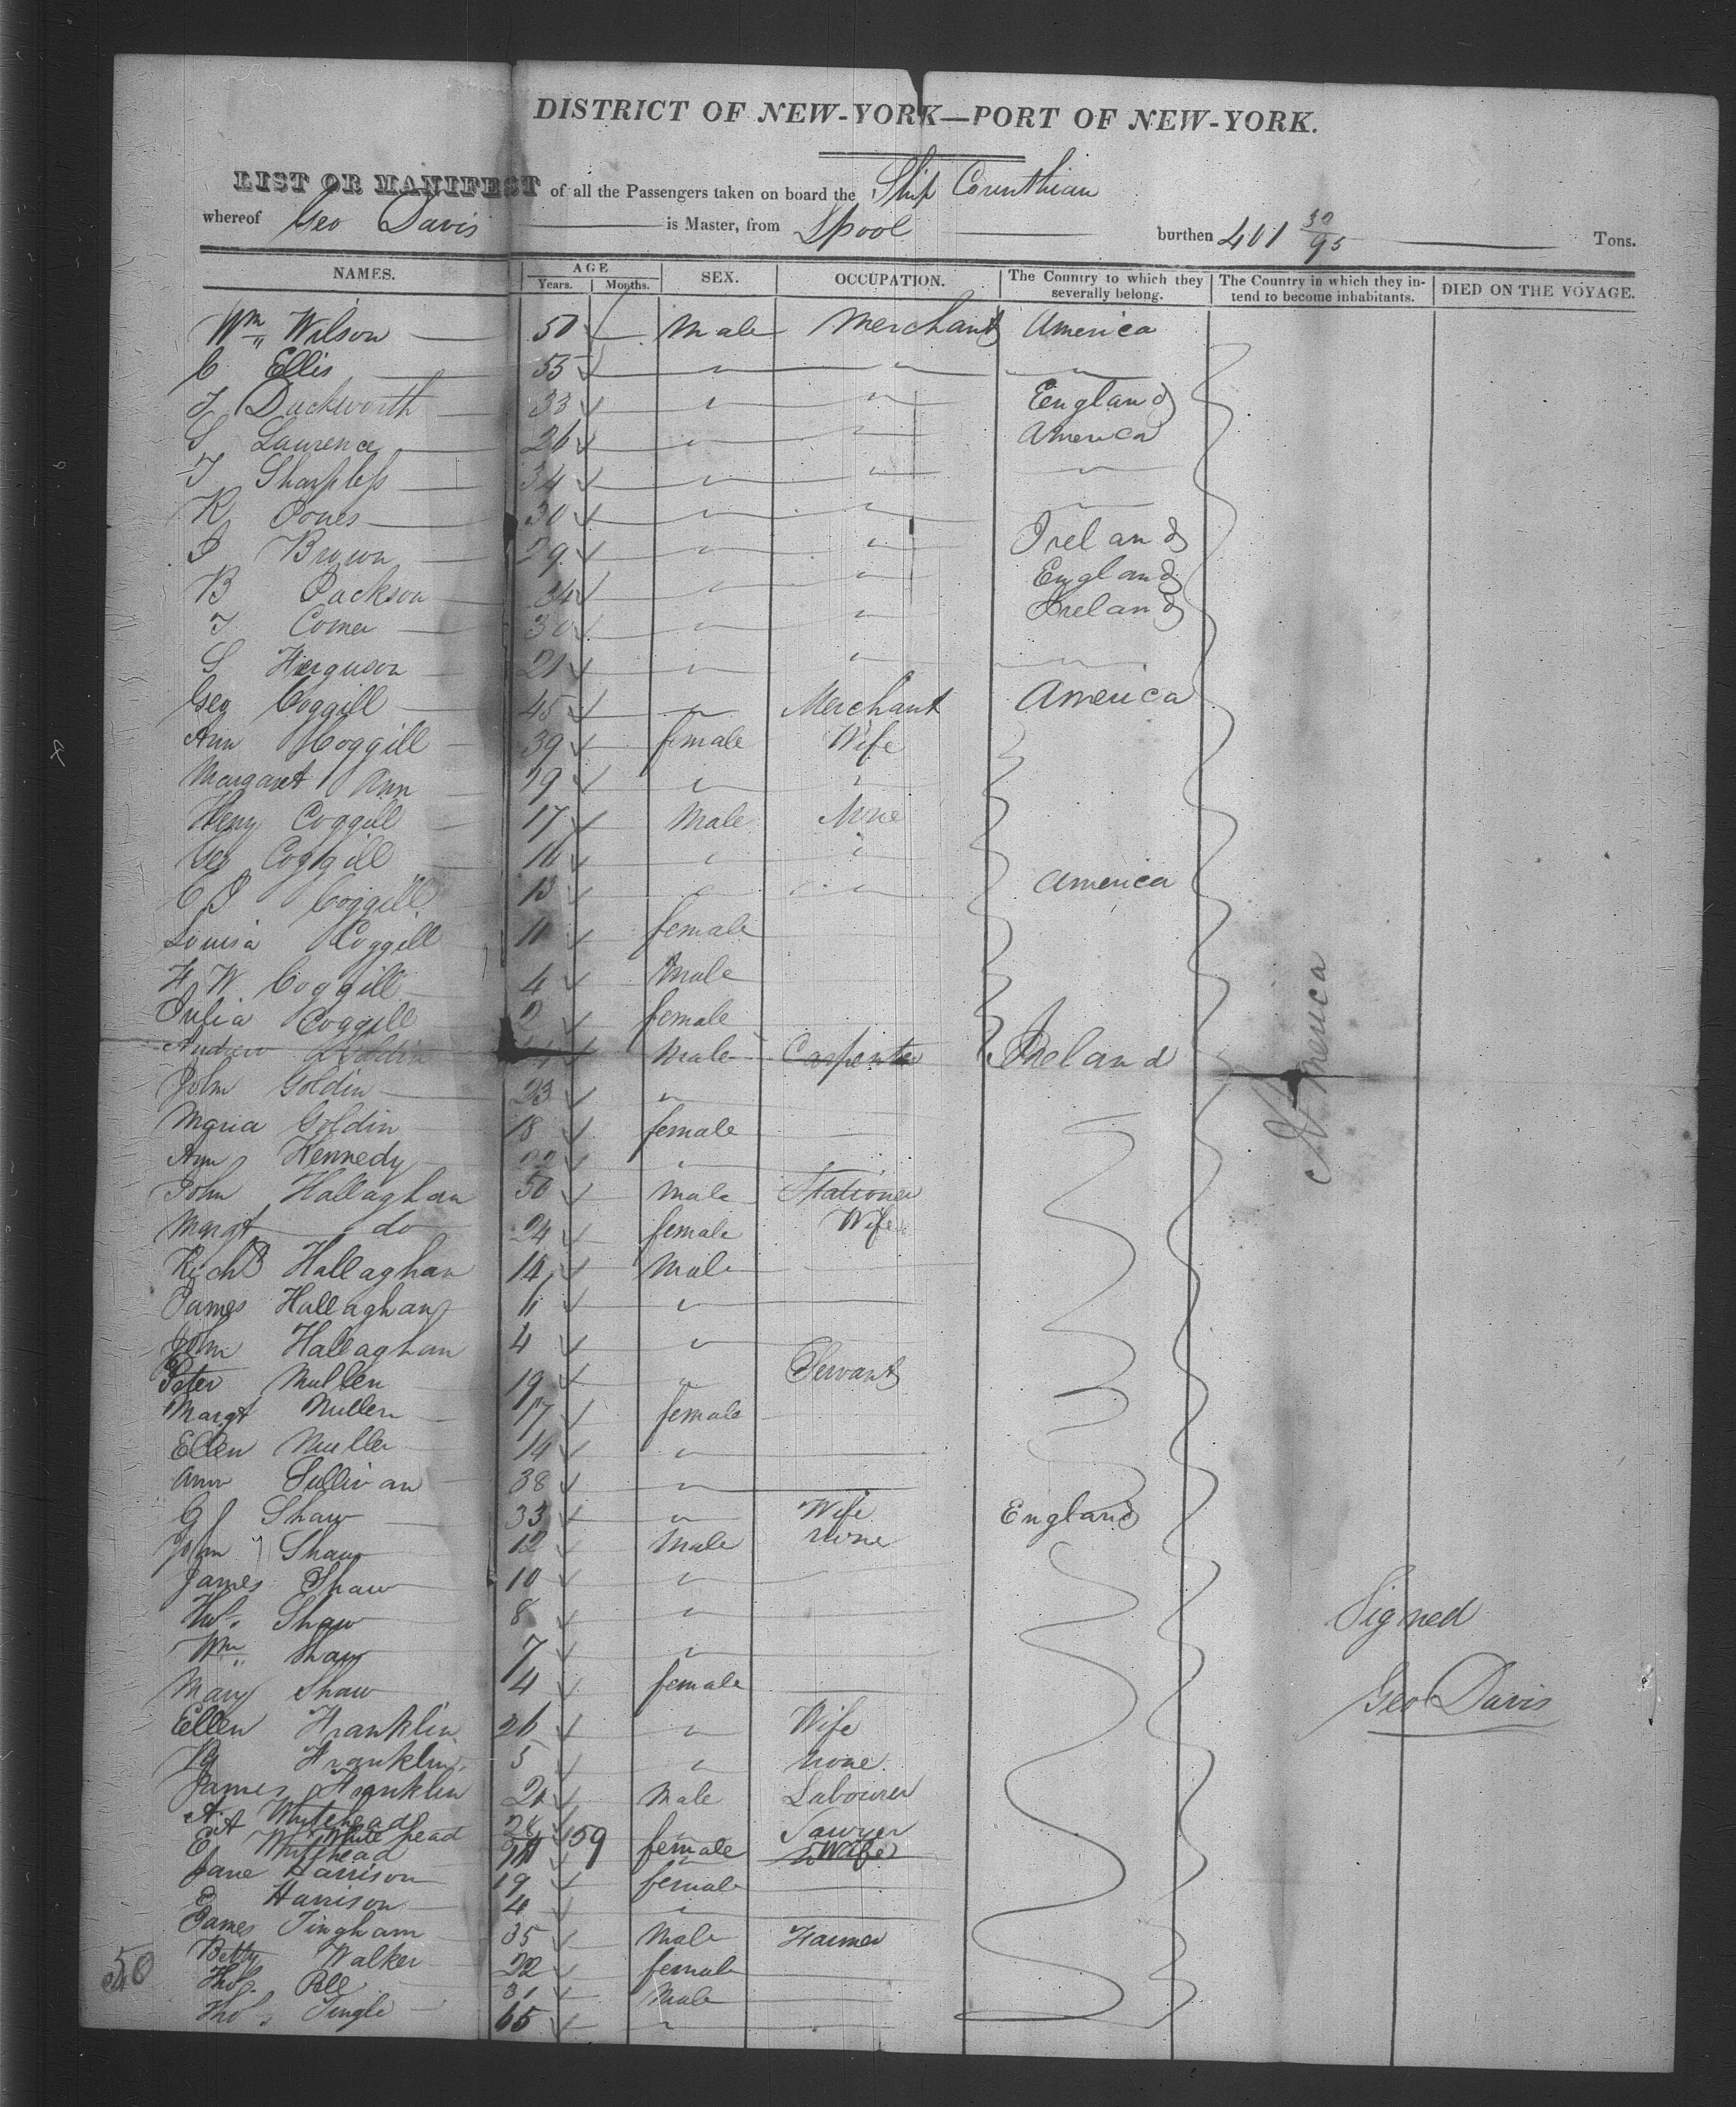 DISTRICT OF NEW-YORK—PORT OF NEW-YORK.
LIST OR MANIFEST of all the Passengers taken on board the Ship Corinthian
whereof Geo Davis is Master, from Lpool burthen 401 30/95 Tons.
NAMES. AGE Years. Months. SEX. OCCUPATION. The Country to which they severally belong. The Country in which they intend to become inhabitants. DIED ON THE VOYAGE.
Wm Wilson 50 Male Merchant America
C Ellis 55 " " "
J Duckworth 33 " " England
S Laurence 26 " " America
T Sharpless 34 " " "
R Jones 30 " " "
J Brown 29 " " Ireland
B Jackson 34 " " England
J Comer 30 " " Ireland
S Ferguson 21 " " "
Geo Coggill 45 " Merchant America
Ann Coggill 39 female Wife
Margaret Ann 19 " "
Heny Coggill 17 Male None
Geo Coggill 16 " "
C J Coggill 13 " " America
Louisa Coggill 11 female
F W Coggill 4 Male
Julia Coggill 2 female
Andrew Goldin Male Carpenter Ireland
John Goldin 23 "
Maria Goldin 18 female
Ann Kennedy 22 "
John Hallaghan 50 Male Stationer
Margt do 24 female Wife
Richd Hallaghan 14 Male
James Hallaghan 11 "
John Hallaghan 4 "
Peter Mullen 19 " Servant
Margt Mullen 17 female
Ellen Mullen 14 "
Ann Sullivan 38 "
G Shaw 33 " Wife England
John Shaw 12 Male None
James Shaw 10 "
Thos. Shaw 8 "
Wm Shaw 7 "
Mary Shaw 4 female
Ellen Franklin 26 " Wife
Franklin 5 " None
James Franklin 21 Male Labourer
A Whitehead 28 Sawyer
A Whitehead 59 female Wife
E Whitehead
Jane Harrison 19 female
E Harrison 4 "
James Tingham 35 Male Farmer
Betty Walker 22 female
Thos. 31 Male
Thos. Tingle 65 "
N America
Signed
Geo Davis
50